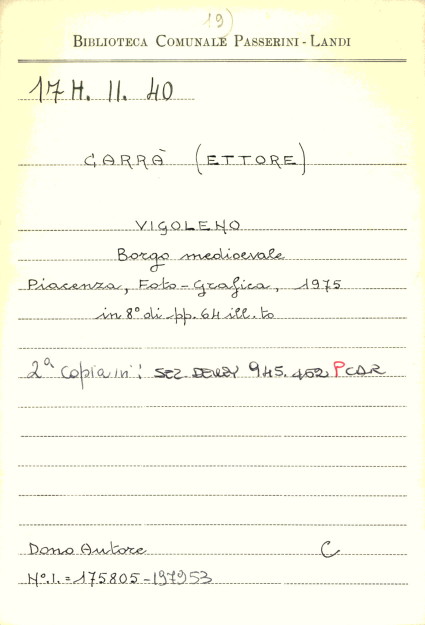 19)
BIBLIOTECA COMUNALE PASSERINI-LANDI
17 H. II. 40
CARRÀ (ETTORE)
VIGOLENO
Borgo medioevale
Piacenza, Foto-Grafica, 1975
in 8° di pp. 64 ill. to
2ª Copia in: SEZ. DEWEY 945.402 PCAR
Dono Autore C
N°. I. = 175805-197953